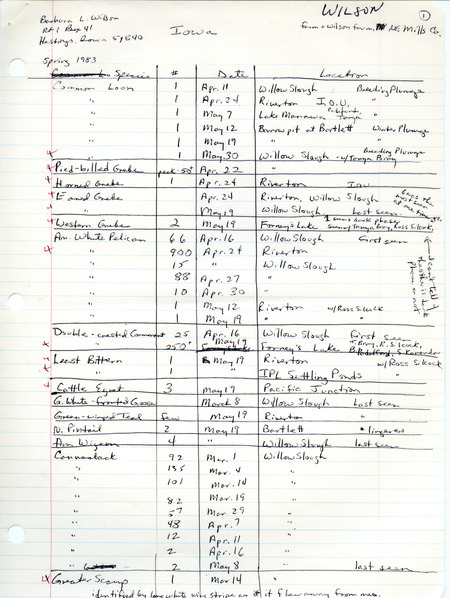 WILSON
1
Barbara L. Wilson
Rt 1 Box 41
Hastings, Iowa 51540
Iowa
farm = Wilson farm, NE Mills Co.
Spring 1983
Species # Date Location
Common Loon 1 Apr. 11 Willow Slough Breeding Plumage
" 1 Apr. 24 Riverton I.O.U.
" 1 May 7 Lake Manawa
" 1 May 12 Borrow pit at Bartlett Winter Plumage
" 1 May 19 " Breeding Plumage
" 1 May 30 Willow Slough - w/Tanya Bray
Pied-billed Grebe peak-50+ Apr. 22 "
Horned Grebe 1 Apr. 24 Riverton IOU
Eared Grebe Apr. 24 Riverton, Willow Slough
" May 19 Last seen
Western Grebe 2 May 19 Forney's Lake
Am. White Pelican 66 Apr. 16 Willow Slough First seen
" 900 Apr. 24 Riverton
" 15 " Willow Slough
" 88 Apr. 27 "
" 10 Apr. 30 "
" 1 May 12 Riverton w/Ross Silcock
" 1 May 19 "
Double-crested Cormorant 25 Apr. 16 Willow Slough First seen
" 250+ May 19 Forney's Lake T. Bray, R. Silcock,
Least Bittern 1 May 19 Riverton w/Ross Silcock
" 1 " IPL Settling Ponds
Cattle Egret 3 May 19 Pacific Junction
G. White-fronted Goose March 8 Willow Slough Last seen
Green-winged Teal few May 19 Riverton "
N. Pintail 2 May 19 Bartlett * lingered
Am Wigeon 4 " Willow Slough last seen
Canvasback 92 Mar. 1 Willow Slough
" 135 Mar. 4 "
" 101 Mar. 14 "
" 82 Mar. 19 "
" 57 Mar. 29 "
" 48 Apr. 7 "
" 12 Apr. 11 "
" 2 Apr. 16 "
" 2 May 8 " last seen
Greater Scaup 1 Mar 14 "
identified by long white wing stripe as it flew away from me.